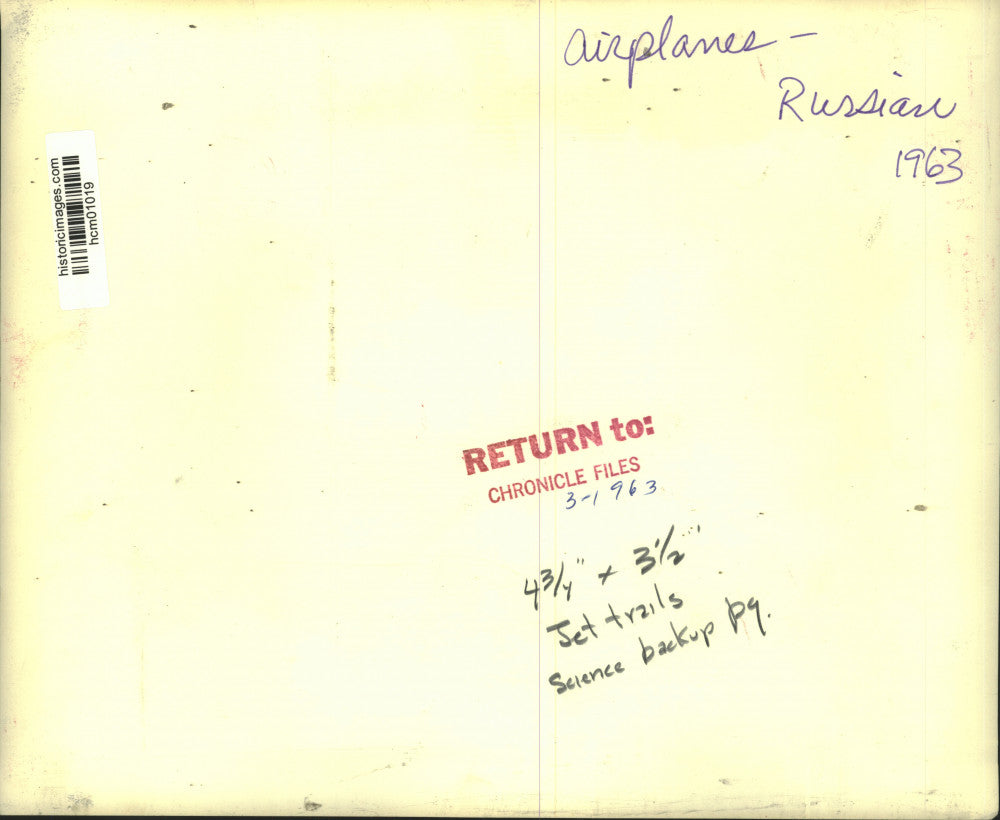 airplanes -
Russian
1963
historicimages.com
hcm01019
RETURN to:
CHRONICLE FILES
3-1963
4 3/4" x 3 1/2"
Jet trails
Science backup pg.